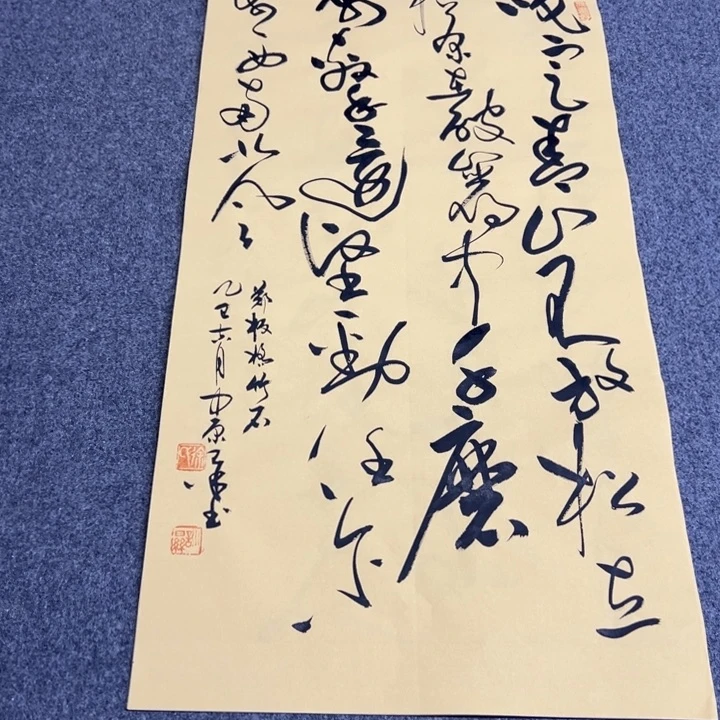 咬定青山不放松立
根原在破岩中千磨
万擊還堅勁任尔
東西南北风
郑板桥竹石
乙巳六月中原
书